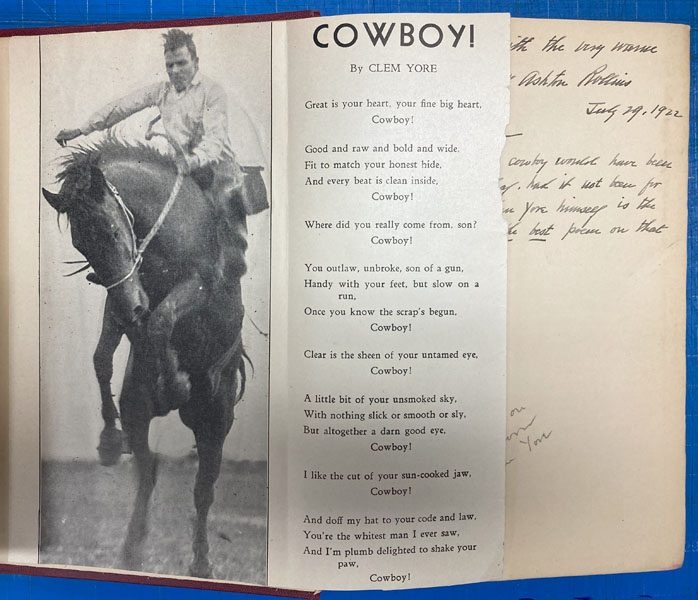 COWBOY!
By CLEM YORE
Great is your heart, your fine big heart,
Cowboy!
Good and raw and bold and wide,
Fit to match your honest hide,
And every beat is clean inside,
Cowboy!
Where did you really come from, son?
Cowboy!
You outlaw, unbroke, son of a gun,
Handy with your feet, but slow on a
run,
Once you know the scrap's begun,
Cowboy!
Clear is the sheen of your untamed eye,
Cowboy!
A little bit of your unsmoked sky,
With nothing slick or smooth or sly,
But altogether a darn good eye,
Cowboy!
I like the cut of your sun-cooked jaw,
Cowboy!
And doff my hat to your code and law,
You're the whitest man I ever saw,
And I'm plumb delighted to shake your
paw,
Cowboy!
with the very warm
Ashton Rollins
July 29, 1922
cowboy would have been
had it not been for
Yore himself is the
best poem on that
on
Yore